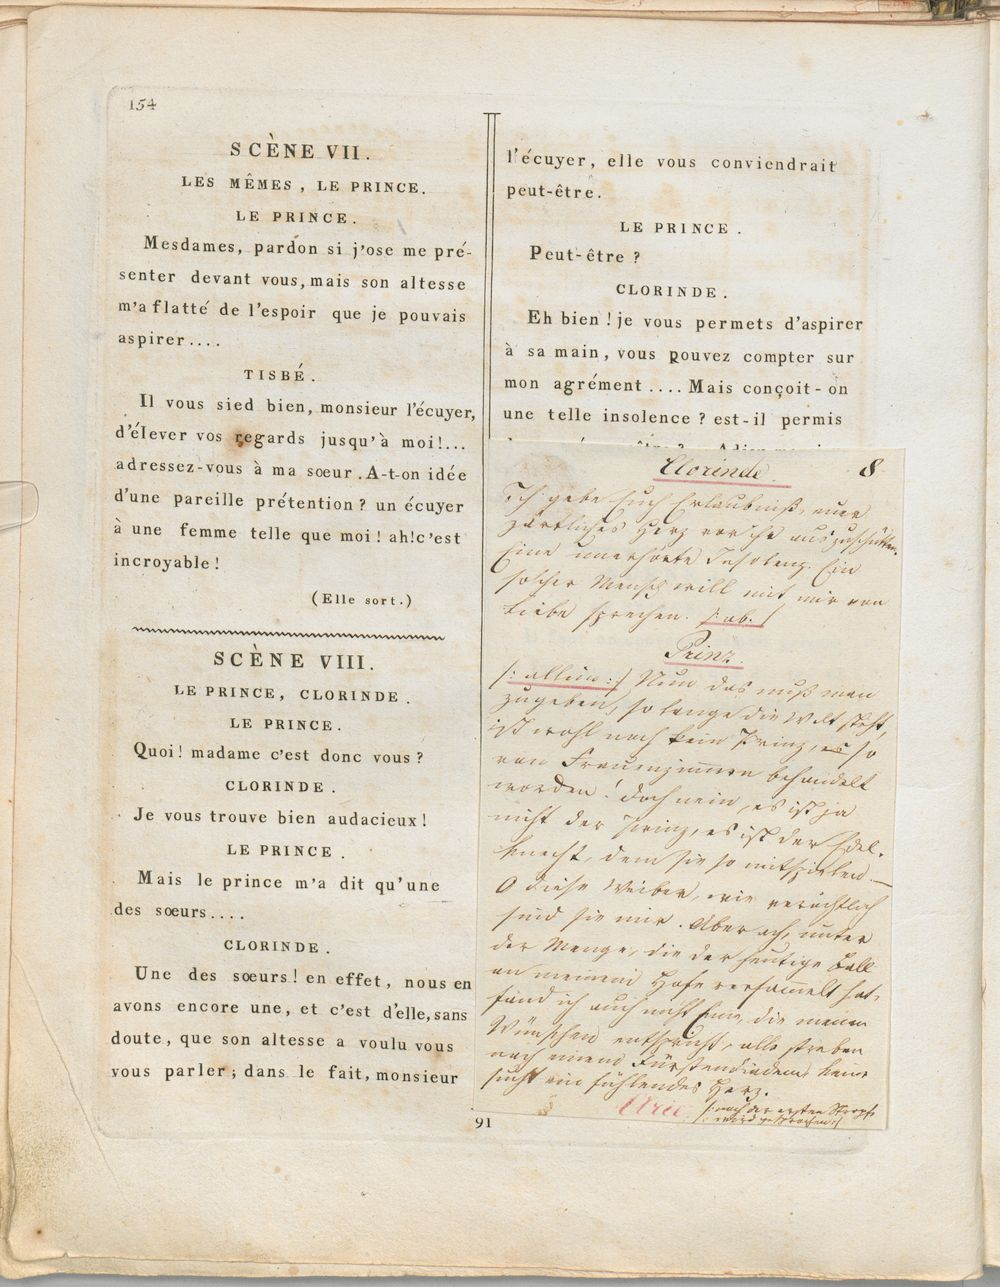 154
SCÈNE VII.
LES MÊMES, LE PRINCE.
LE PRINCE.
Mesdames, pardon si j'ose me pré-
senter devant vous, mais son altesse
m'a flatté de l'espoir que je pouvais
aspirer....
TISBÉ.
Il vous sied bien, monsieur l'écuyer,
d'élever vos regards jusqu'à moi!...
adressez-vous à ma sœur. A-t-on idée
d'une pareille prétention? un écuyer
à une femme telle que moi! ah! c'est
incroyable!
(Elle sort.)
SCÈNE VIII.
LE PRINCE, CLORINDE.
LE PRINCE.
Quoi! madame c'est donc vous?
CLORINDE.
Je vous trouve bien audacieux!
LE PRINCE.
Mais le prince m'a dit qu'une
des sœurs....
CLORINDE.
Une des sœurs! en effet, nous en
avons encore une, et c'est d'elle, sans
doute, que son altesse a voulu vous
vous parler; dans le fait, monsieur
l'écuyer, elle vous conviendrait
peut-être.
LE PRINCE.
Peut-être?
CLORINDE.
Eh bien! je vous permets d'aspirer
à sa main, vous pouvez compter sur
mon agrément.... Mais conçoit-on
une telle insolence? est-il permis
Clorinde. 8
Ich gebe Euch Erlaubniß, euer
zärtliches Herz vor ihr auszuschütten.
Eine unerhörte Insolenz. Ein
solcher Mensch will mit mir von
Liebe sprechen. /: ab. /
Prinz.
/: allein :/ Nun das muß man
zugeben, so lange die Welt steht,
ist wohl noch kein Prinz, so
von Frauenzimmern behandelt
worden! doch nein, es ist ja
nicht der Prinz, es ist der Edel-
knecht, dem sie so mitspielten. —
O diese Weiber, wie verächtlich
sind sie mir. Aber ach, unter
der Menge, die der heutige Ball
an meinem Hofe versammelt hat,
fand ich auch nicht Eine, die meinen
Wünschen entspricht, alle streben
nach einem Fürstendiadem, keine
sucht ein fühlendes Herz.
Arie. /: nach der ersten Stroph
wird gesprochen :/
91